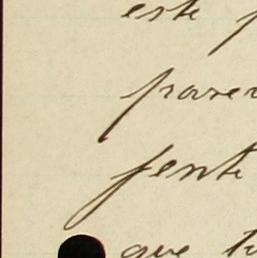 este p
parec
fente
que tu